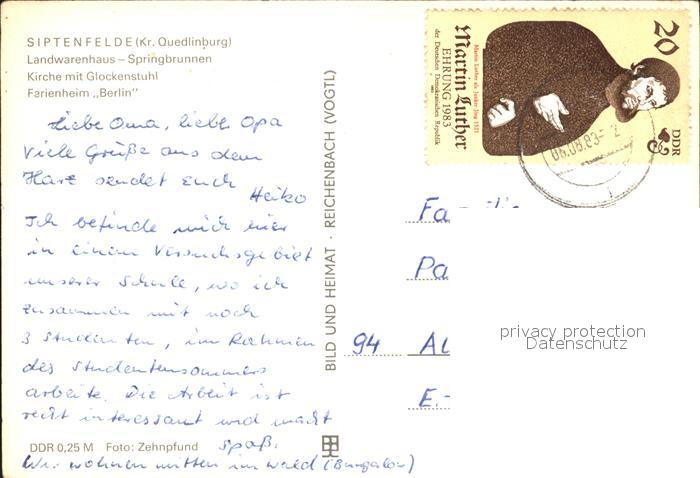 SIPTENFELDE (Kr. Quedlinburg)
Landwarenhaus – Springbrunnen
Kirche mit Glockenstuhl
Ferienheim „Berlin"
Liebe Oma, lieber Opa
Viele Grüße aus dem
Harz sendet Euch
Heiko
Ich befinde mich hier
in einem Versuchsgebiet
unserer Schule, wo ich
zusammen mit noch
3 Studenten, im Rahmen
des Studentensommers
arbeite. Die Arbeit ist
recht interessant und macht
Spaß.
Wir wohnen mitten im Wald (Bungalow)
DDR 0,25 M Foto: Zehnpfund
BILD UND HEIMAT · REICHENBACH (VOGTL)
20
DDR
Martin Luther als Junker Jörg 1521
Martin Luther
EHRUNG 1983
der Deutschen Demokratischen Republik
06.08.83
Fa
Pa
94 Al
E.-
privacy protection
Datenschutz